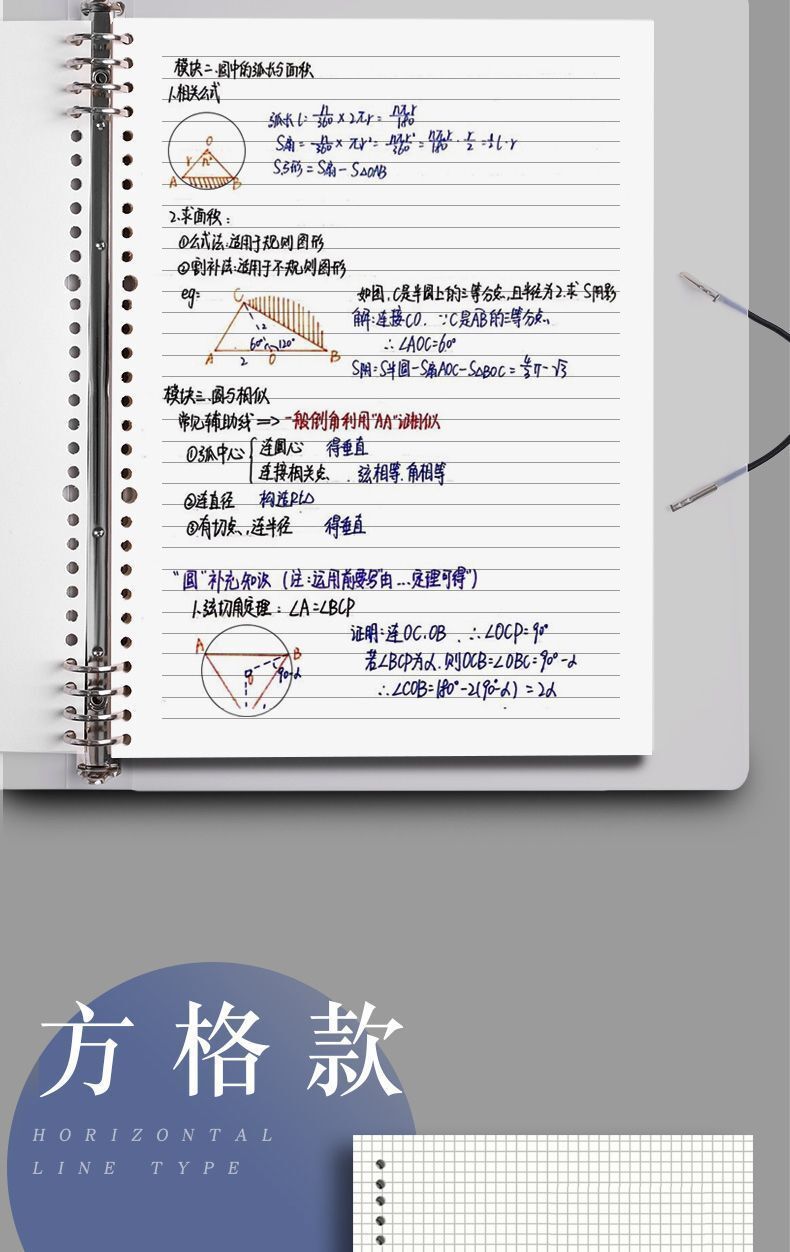 模块二.圆中的弧长与面积
1.相关公式
O
r n°
A B
弧长 l = n/360 × 2πr = nπr/180
S扇 = n/360 × πr² = nπr²/360 = nπr/180 · r/2 = ½l·r
S弓形 = S扇 - S△OAB
2.求面积:
①公式法:适用于规则图形
②割补法:适用于不规则图形
eg:
C
2
60° 120°
A 2 O B
如图,C是半圆上的三等分点,且半径为2.求 S阴影
解:连接CO, ∵C是AB的三等分点,
∴∠AOC=60°
S阴=S半圆-S扇AOC-S△BOC=4/3π-√3
模块三.圆与相似
常见辅助线 => 一般倒角利用"AA"证相似
①弧中心 { 连圆心 得垂直
连接相关点 . 弦相等.角相等
②连直径 构造Rt△
③有切点,连半径 得垂直
"圆"补充知识 (注:运用前要写"由...定理可得")
1.弦切角定理: ∠A=∠BCP
A B
O 90-α
证明:连OC.OB , ∴∠OCP=90°
若∠BCP为α.则∠OCB=∠OBC=90°-α
∴∠COB=180°-2(90°-α) = 2α
方格款
HORIZONTAL
LINE TYPE